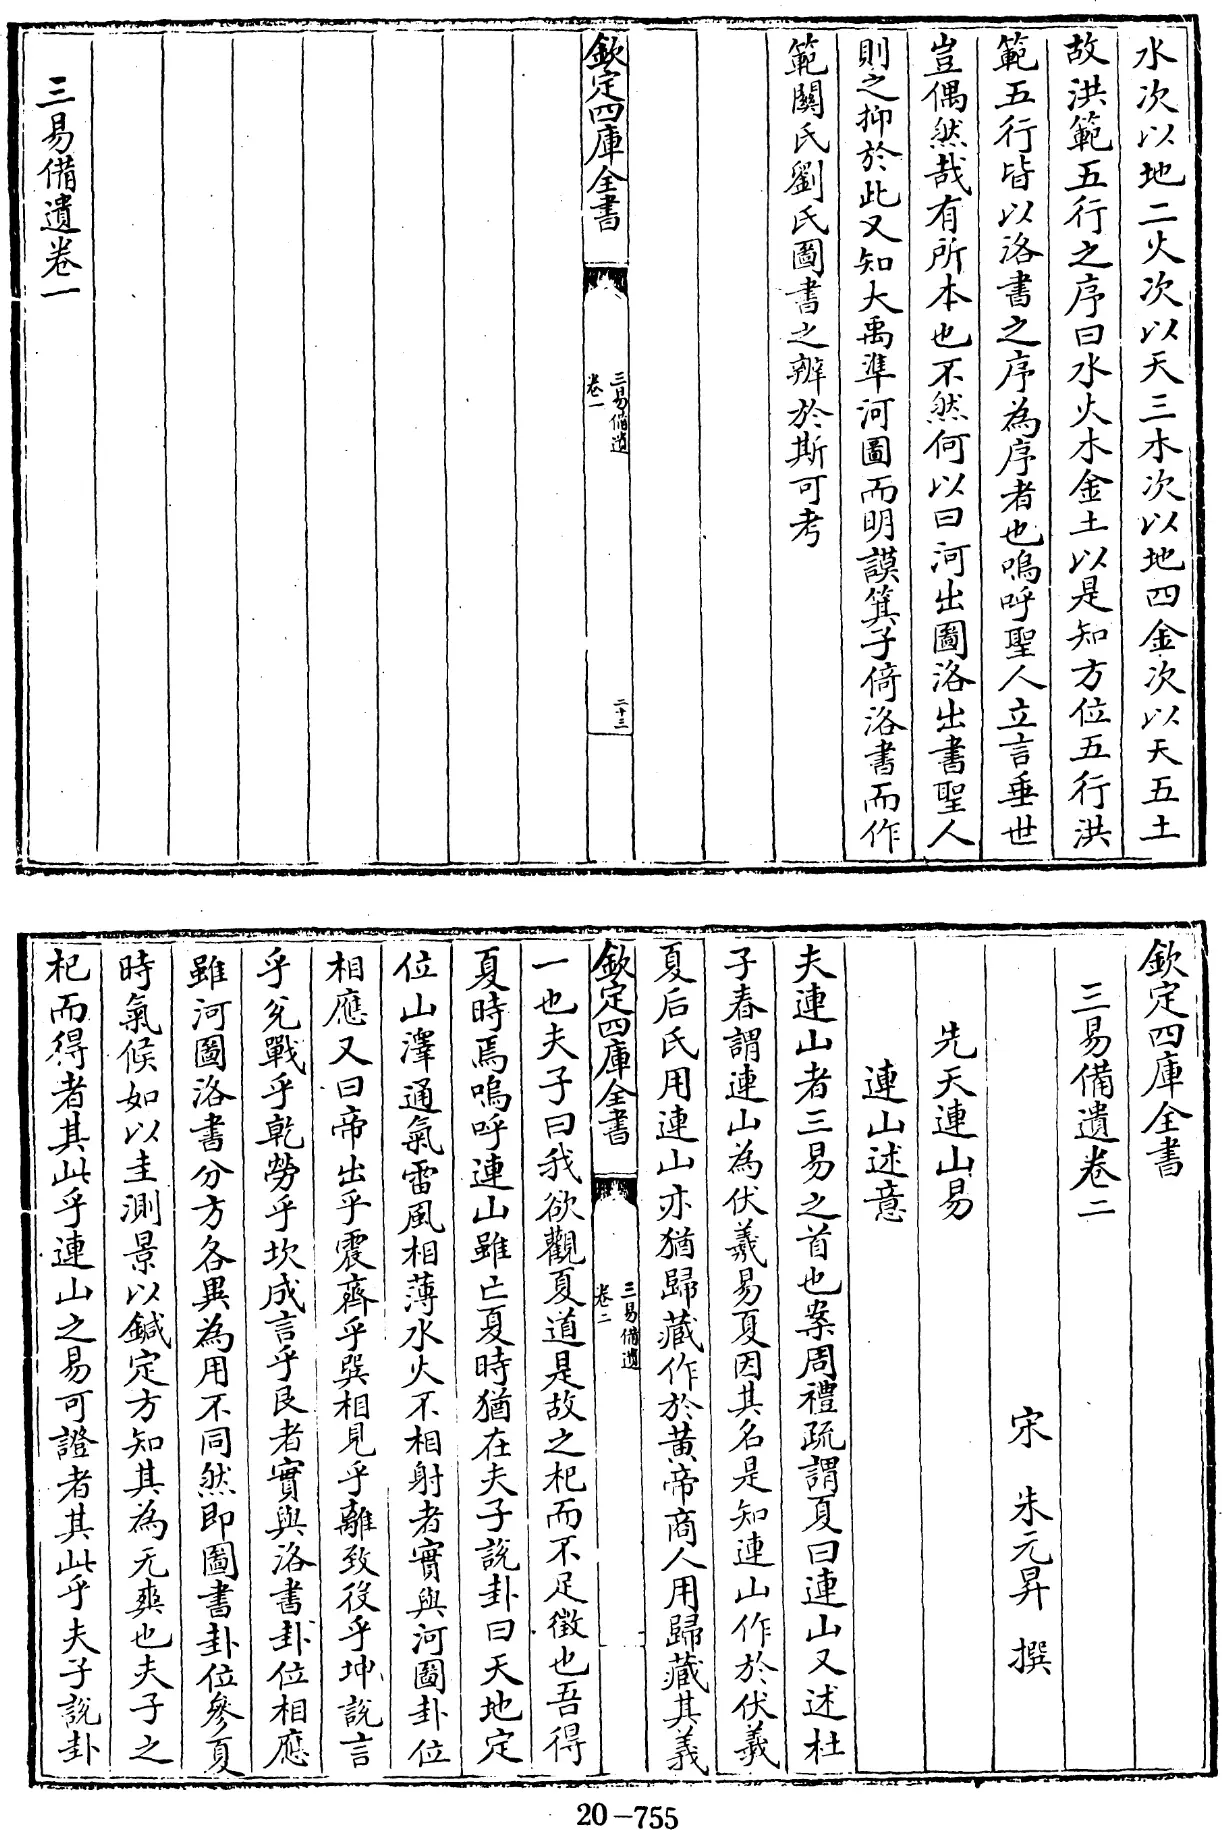 水次以地二火次以天三木次以地四金次以天五土
故洪範五行之序曰水火木金土以是知方位五行洪
範五行皆以洛書之序為序者也嗚呼聖人立言垂世
豈偶然哉有所本也不然何以曰河出圖洛出書聖人
則之抑於此又知大禹準河圖而明謨箕子倚洛書而作
範關氏劉氏圖書之辨於斯可考
欽定四庫全書
三易備遺
卷一
二十三
三易備遺卷一
欽定四庫全書
三易備遺卷二
宋 朱元昇 撰
先天連山易
連山述意
夫連山者三易之首也案周禮疏謂夏曰連山又述杜
子春謂連山為伏羲易夏因其名是知連山作於伏羲
夏后氏用連山亦猶歸藏作於黃帝商人用歸藏其義
欽定四庫全書
三易備遺
卷二
一也夫子曰我欲觀夏道是故之杞而不足徵也吾得
夏時焉嗚呼連山雖亡夏時猶在夫子說卦曰天地定
位山澤通氣雷風相薄水火不相射者實與河圖卦位
相應又曰帝出乎震齊乎巽相見乎離致役乎坤說言
乎兌戰乎乾勞乎坎成言乎艮者實與洛書卦位相應
雖河圖洛書分方各異為用不同然即圖書卦位參夏
時氣候如以圭測景以鍼定方知其為无爽也夫子之
杞而得者其此乎連山之易可證者其此乎夫子說卦
20-755